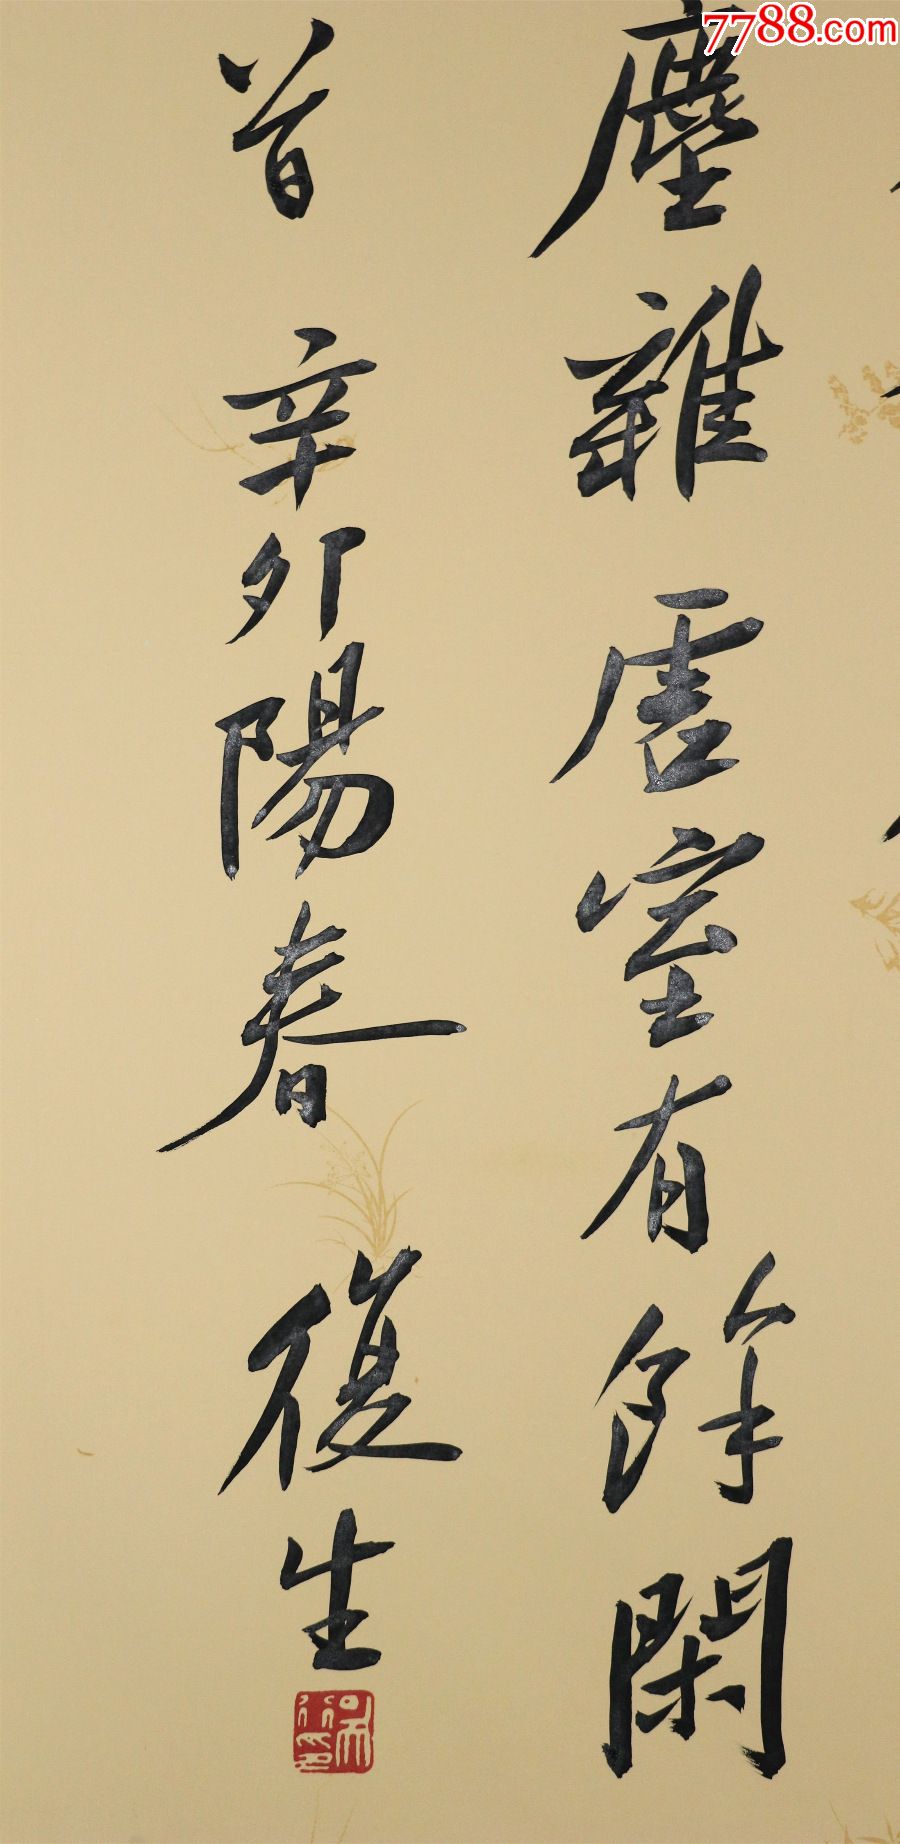 7788.com
塵雜虛室有餘閑
首 辛卯陽春 復生